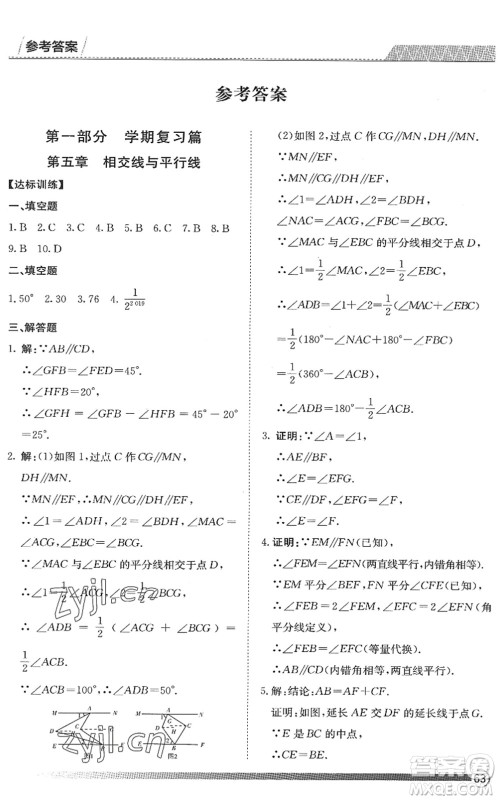 参考答案
参考答案
第一部分 学期复习篇
第五章 相交线与平行线
【达标训练】
一、填空题
1.B 2.B 3.D 4.B 5.D 6.B 7.B 8.B
9.B 10.D
二、填空题
1.50° 2.30 3.76 4.1/2^{2 019}
三、解答题
1. 解:∵AB∥CD,
∴∠GFB=∠FED=45°.
∵∠HFB=20°,
∴∠GFH=∠GFB-∠HFB=45°-20°
=25°.
2. 解:(1)如图1,过点C作CG∥MN,
DH∥MN.
∵MN∥EF,
∴MN∥CG∥DH∥EF,
∴∠1=∠ADH,∠2=∠BDH,
∵∠MAC与∠EBC的平分线相交于点D,
∴∠1=1/2∠ACG,∠2=1/2∠BCG,
∴∠ADB=1/2(∠ACG+∠BCG)=
1/2∠ACB.
∵∠ACB=100°,∴∠ADB=50°.
M A N
D
C
E B F
图1
M A N
图2
(2)如图2,过点C作CG∥MN,DH∥MN.
∵MN∥EF,
∴MN∥CG∥DH∥EF,
∴∠1=∠ADH,∠2=∠BDH,
∠NAC=∠ACG,∠FBC=∠BCG.
∵∠MAC与∠EBC的平分线相交于点D,
∴∠1=1/2∠MAC,∠2=1/2∠EBC,
∴∠ADB=∠1+∠2=1/2(∠MAC+∠EBC)
=1/2(180°-∠NAC+180°-∠FBC)
=1/2(360°-∠ACB),
∴∠ADB=180°-1/2∠ACB.
3. 证明:∵∠A=∠1,
∴AE∥BF,
∴∠E=∠EFG.
∵CE∥DF,
∴∠EFG=∠F,
∴∠E=∠F.
4. 证明:∵EM∥FN(已知),
∴∠FEM=∠EFN(两直线平行,内错角相等).
又∵∠BEF=2∠FEM,∠EFC=2∠EFN(角
平分线定义),
∴∠BEF=∠EFC(等量代换).
∴AB∥CD(内错角相等,两直线平行).
5. 解:结论:AB=AF+CF.
证明:如图,延长AE交DF的延长线于点G.
∵E是BC的中点,
∴CE=BE.
63
zyjl.cn
答案卷
MXQE.COM